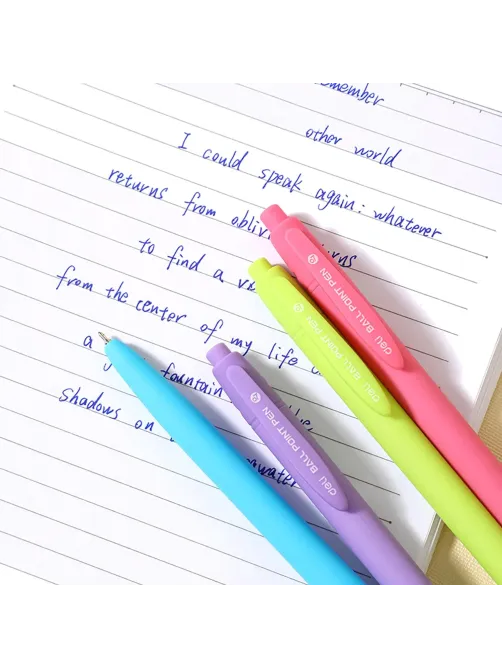 remember
other world
I could speak again: whatever
returns from
to find a
from the center of my life
a fountain
shadows on
deli BALL POINT PEN
deli BALL POINT PEN
deli BALL POINT PEN